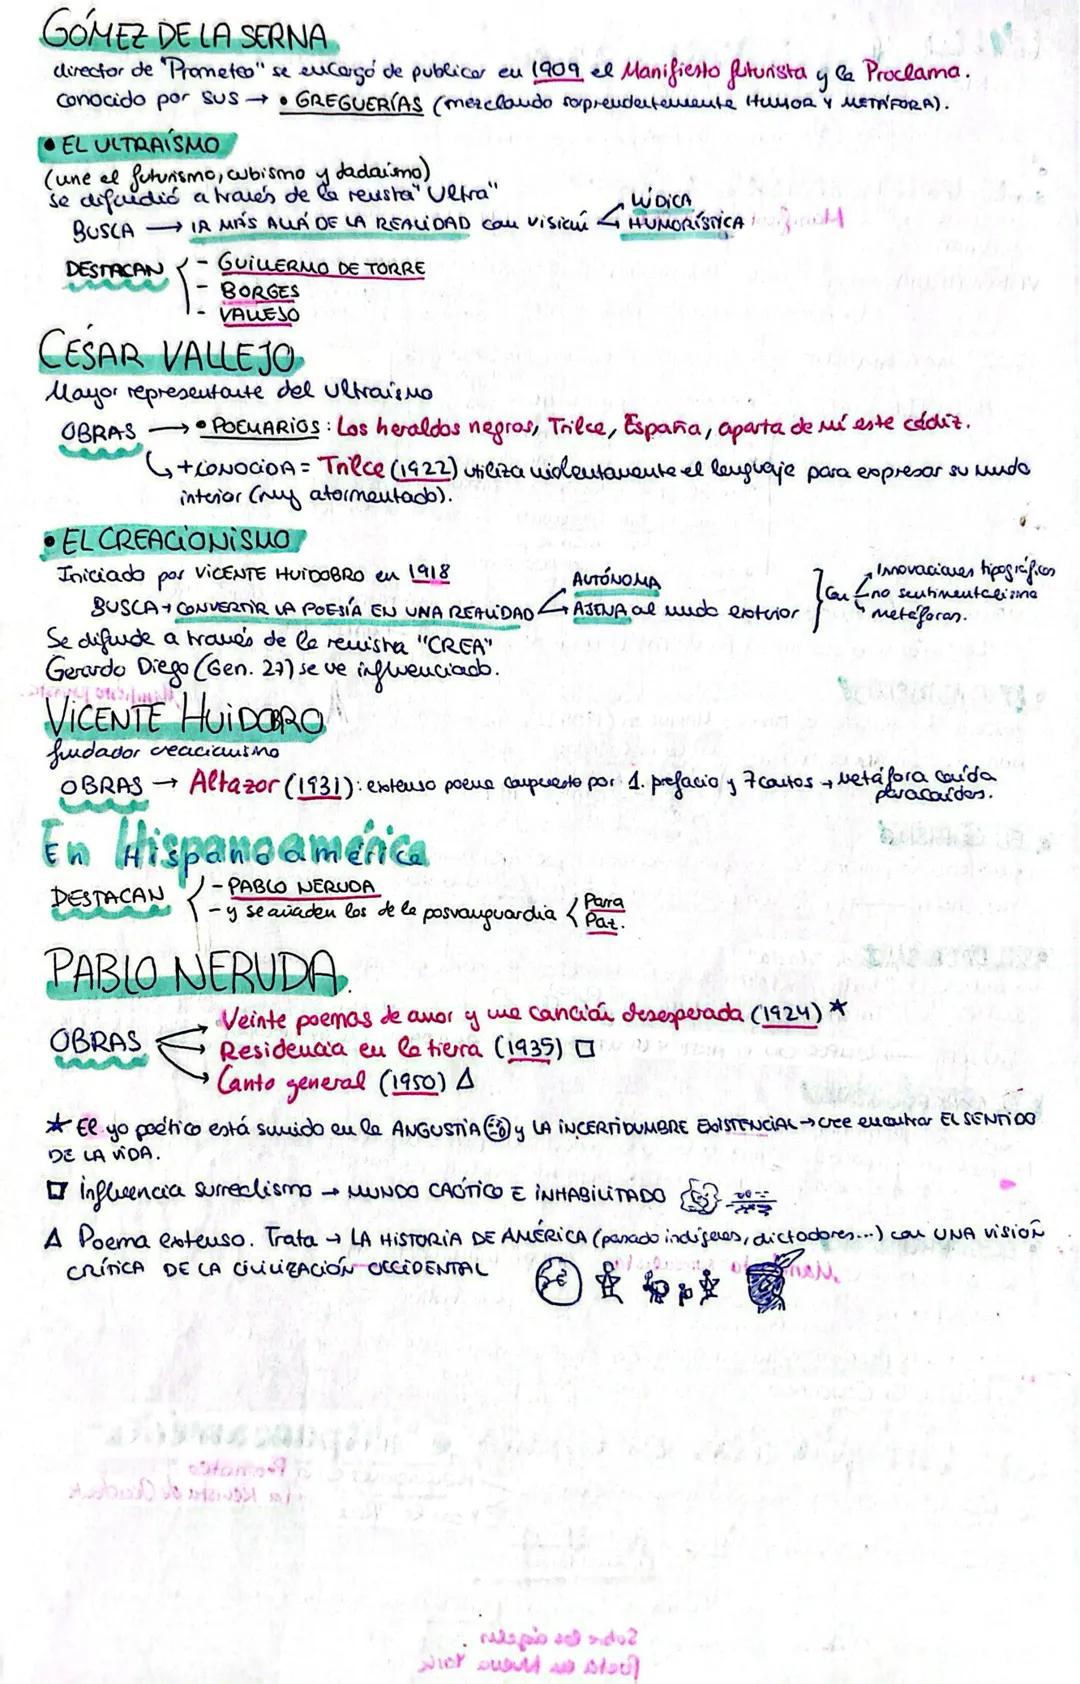 GÓMEZ DE LA SERNA
director de "Prometeo" se encargó de publicar en 1909 el Manifiesto futurista y la Proclama.
conocido por sus → • GREGUERÍAS (mezclando sorprendentemente HUMOR Y METÁFORA).
• EL ULTRAÍSMO
(une el futurismo, cubismo y dadaísmo)
se difundió a través de la revista "Ultra"
BUSCA → IR MÁS ALLÁ DE LA REALIDAD con visión LÚDICA
HUMORÍSTICA
DESTACAN - GUILLERMO DE TORRE
- BORGES
- VALLEJO
CÉSAR VALLEJO
Mayor representante del Ultraísmo
OBRAS → • POEMARIOS: Los heraldos negros, Trilce, España, aparta de mí este cádiz.
+CONOCIDA = Trilce (1922) utiliza violentamente el lenguaje para expresar su mundo
interior (muy atormentado).
• EL CREACIONISMO
Iniciado por VICENTE HUIDOBRO en 1918
BUSCA → CONVERTIR LA POESÍA EN UNA REALIDAD AUTÓNOMA
AJENA al mundo exterior } Con Innovaciones tipográficas
no sentimentalismo
metáforas.
Se difunde a través de la revista "CREA"
Gerardo Diego (Gen. 27) se ve influenciado.
VICENTE HUIDOBRO
fundador creacionismo
OBRAS → Altazor (1931): extenso poema compuesto por 1. prefacio y 7 cantos → metáfora caída
paracaídas.
En Hispanoamérica
DESTACAN - PABLO NERUDA
- y se añaden los de la posvanguardia Parra
Paz.
PABLO NERUDA.
OBRAS → Veinte poemas de amor y una canción desesperada (1924) ★
→ Residencia en la tierra (1935) □
→ Canto general (1950) △
★ El yo poético está sumido en la ANGUSTIA y LA INCERTIDUMBRE EXISTENCIAL → cree encontrar EL SENTIDO
DE LA VIDA.
□ influencia surrealismo → MUNDO CAÓTICO E INHABILITADO
△ Poema extenso. Trata → LA HISTORIA DE AMÉRICA (pasado indígenas, dictadores...) con UNA VISIÓN
CRÍTICA DE LA CIVILIZACIÓN OCCIDENTAL